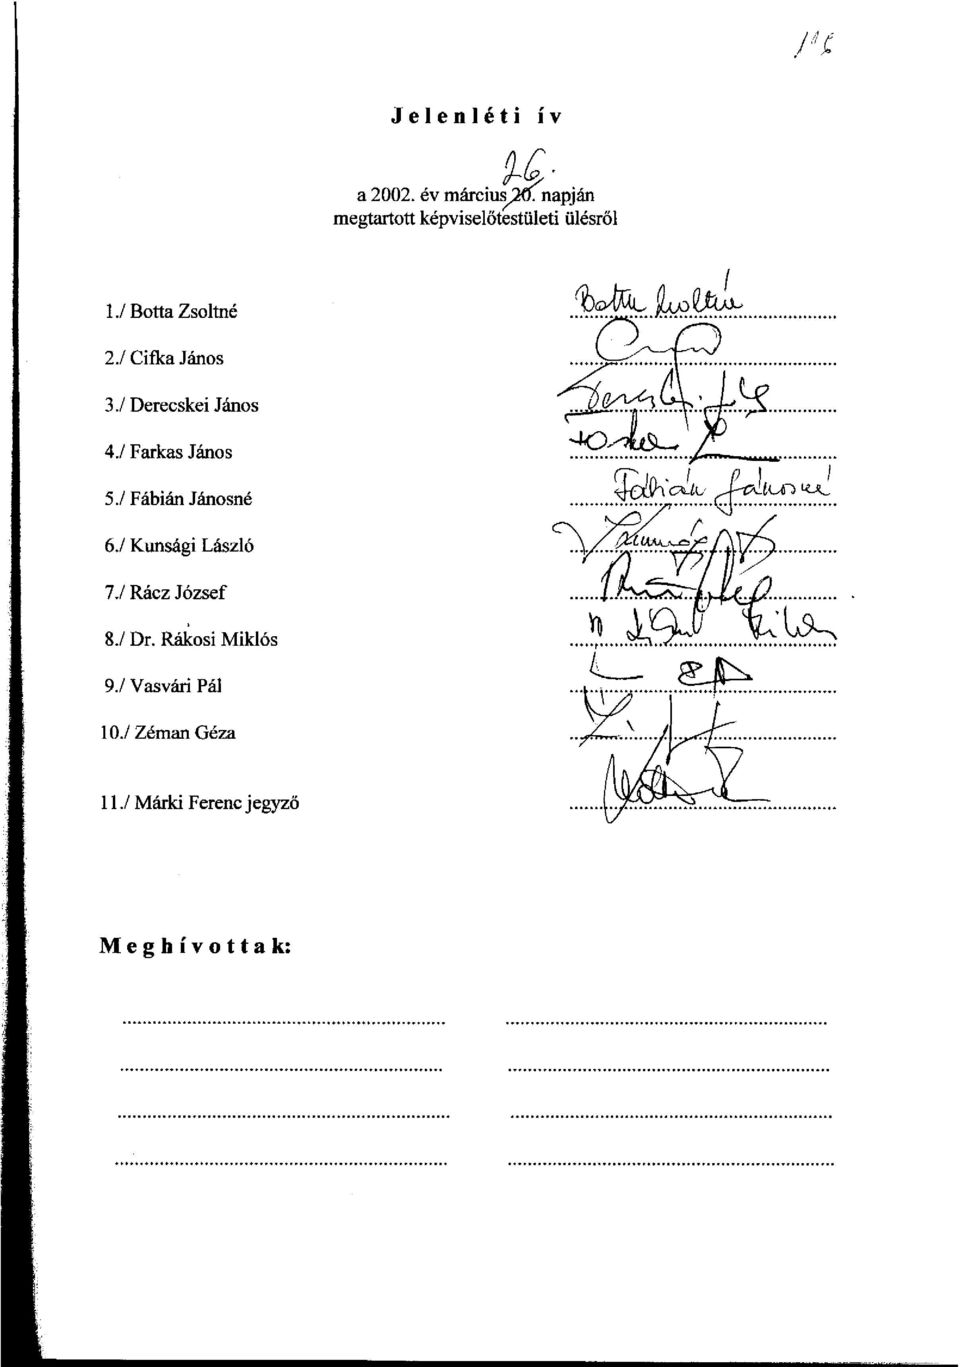 Jelenléti ív
26.
a 2002. év március 20. napján
megtartott képviselőtestületi ülésről
1./ Botta Zsoltné Botta Zsoltné
2./ Cifka János
3./ Derecskei János
4./ Farkas János
5./ Fábián Jánosné Fábián Jánosné
6./ Kunsági László
7./ Rácz József
8./ Dr. Rákosi Miklós
9./ Vasvári Pál
10./ Zéman Géza
11./ Márki Ferenc jegyző
Meghívottak: